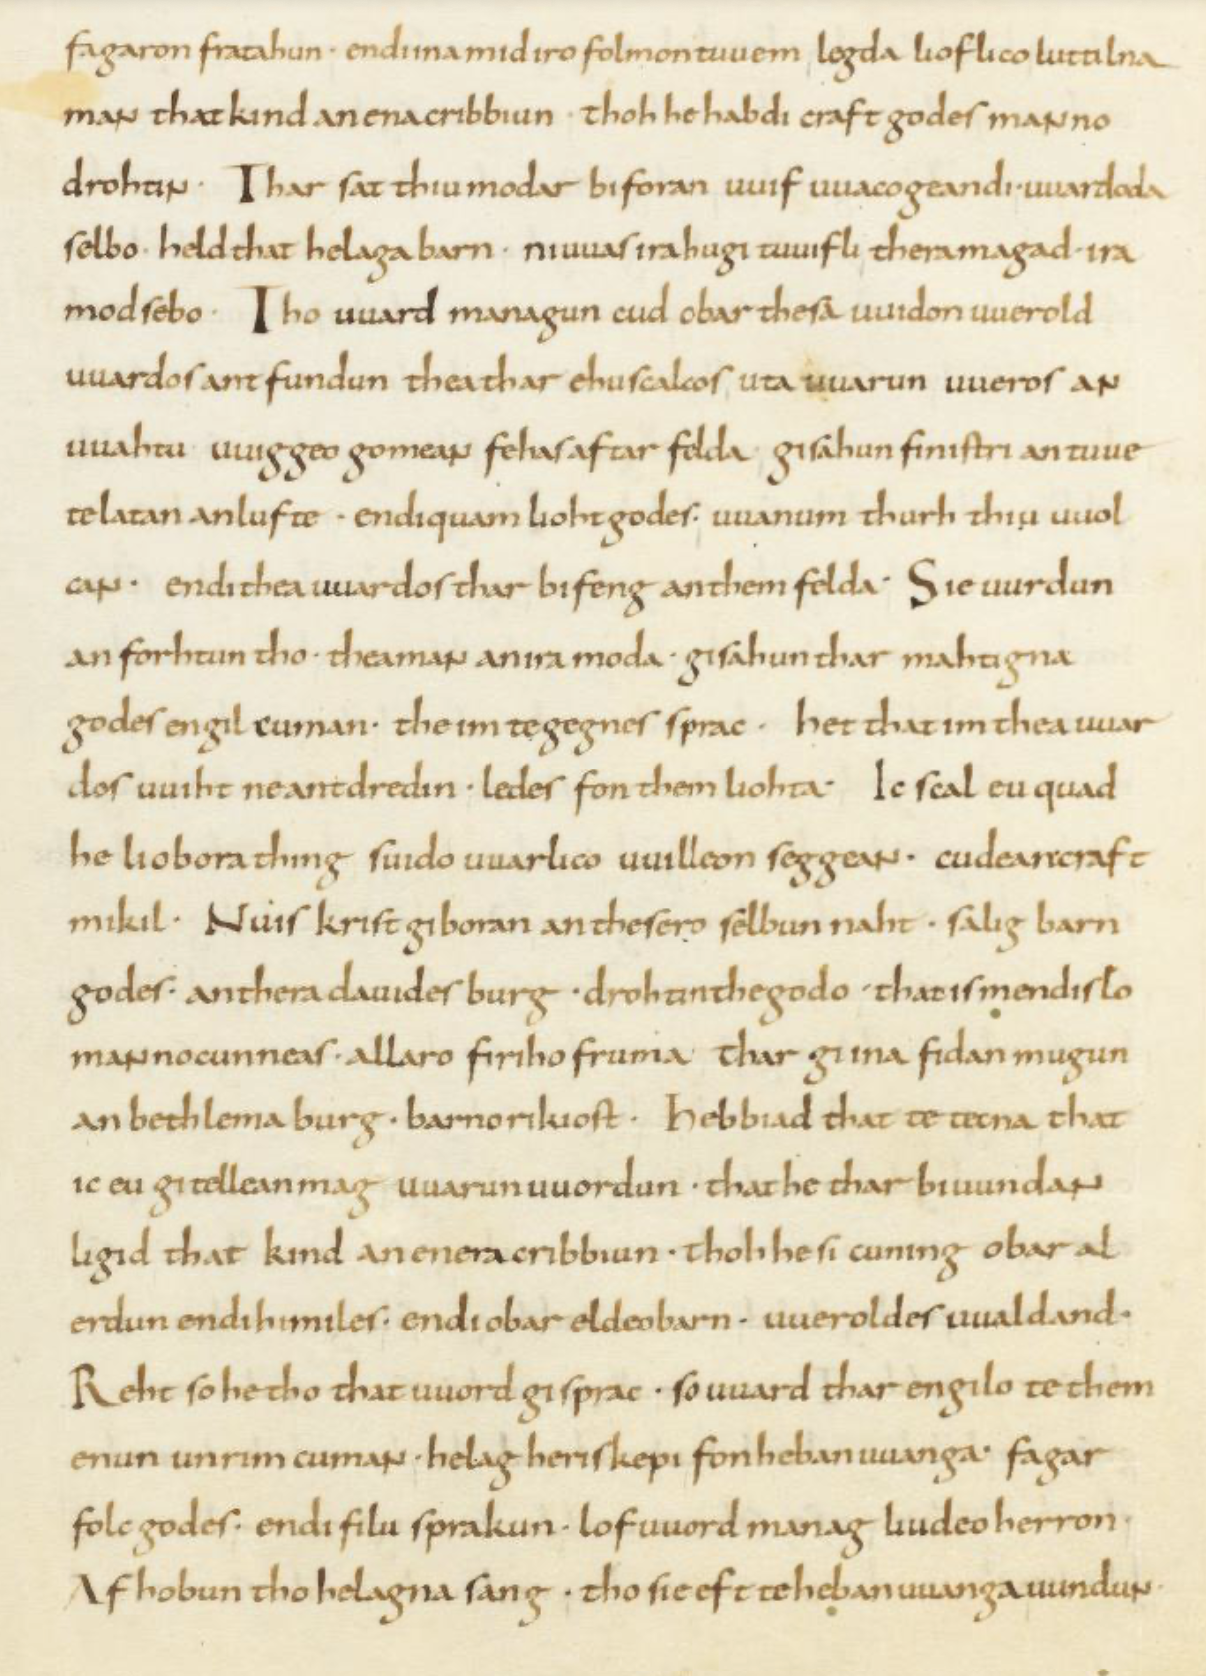 fagaron fratahun · endi ina mid iro folmon tuuem legda lioflico luttilna
man that kind an ena cribbiun · thoh he habdi craft godes manno
drohtin · Thar sat thiu modar biforan uuif uuacogeandi · uuardoda
selbo · held that helaga barn · ni uuas ira hugi tuuifli thera magad · ira
modsebo · Tho uuard managun cud obar thesā uuidon uuerold
uuardos antfundun thea thar ehuscalcos uta uuarun uueros an
uuahtu uuiggeo gomean fehas aftar felda gisahun finistri an tuue
telatan an lufte · endi quam lioht godes · uuanum thurh thiu uuol
can · endi thea uuardos thar bifeng an them felda · Sie uurdun
an forhtun tho · thea man an ira moda · gisahun thar mahtigna
godes engil cuman · the im tegegnes sprac · het that im thea uuar
dos uuiht ne antdredin · ledes fon them liohta · Ic scal eu quad
he liobora thing suido uuarlico uuilleon seggean · cudean craft
mikil · Nu is krist giboran an thesero selbun naht · salig barn
godes · an thera dauides burg · drohtin the godo · that is mendislo
manno cunneas · allaro firiho fruma thar gi ina fidan mugun
an bethlema burg · barno rikiost · hebbiad that te tecna that
ic eu gitellean mag uuarun uuordun · that he thar biuundan
ligid that kind an enera cribbiun · thoh he si cuning obar al
erdun endi himiles · endi obar eldeo barn · uueroldes uualdand ·
Reht so he tho that uuord gisprac · so uuard thar engilo te them
enun unrim cuman · helag heriskepi fon hebanuuanga · fagar
folc godes · endi filu sprakun · lofuuord manag liudeo herron ·
Afhobun tho helagna sang · tho sie eft te hebanuuanga uundun ·